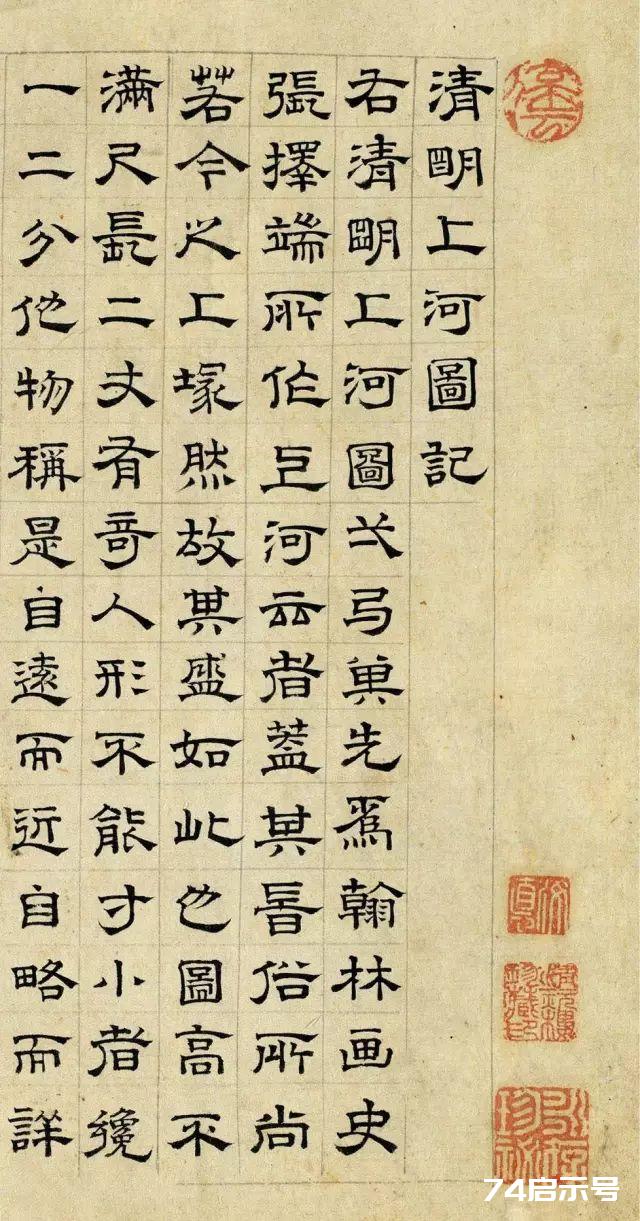 清明上河圖記
右清明上河圖弌弓先為翰林画史
張擇端所作上河云者蓋其旹俗所尚
若今之上塚然故其盛如此也圖高不
滿尺長二丈有奇人形不能寸小者纔
一二分他物稱是自遠而近自略而詳
74启示号